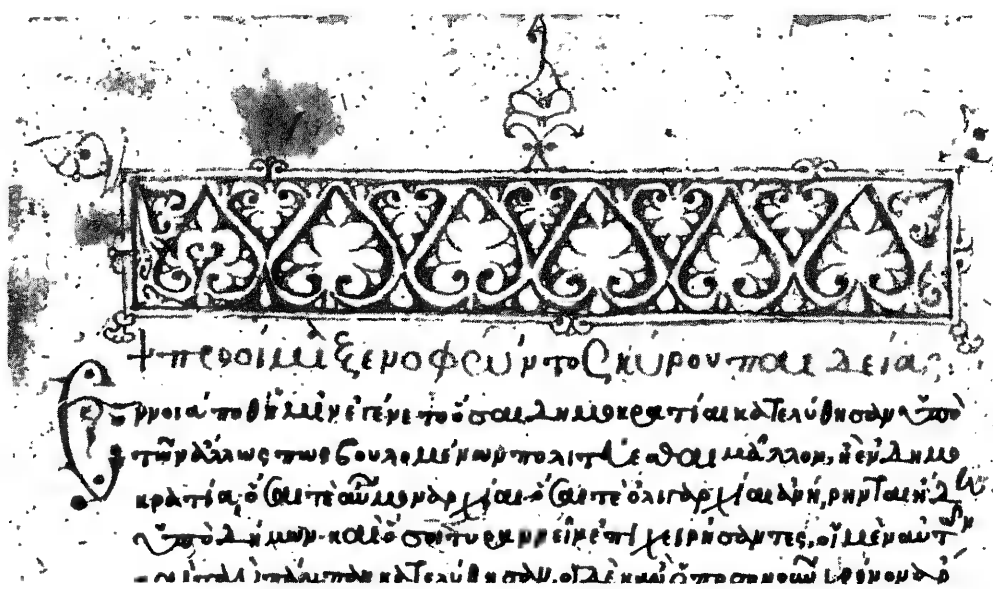 + προοίμιον ξενοφῶντος κύρου παιδείας:
Ἔννοιά ποθ' ἡμῖν ἐγένετο ὅσαι δημοκρατίαι κατελύθησαν ὑπὸ
τῶν ἄλλως πως βουλομένων πολιτεύεσθαι μᾶλλον, ἢ ἐν δημο
κρατία· ὅσαι τὲ αὖ μοναρχίαι ὅσαι τὲ ὀλιγαρχίαι ἀνήρηνται ἤδη
ὑπὸ δήμων· καὶ ὅσοι τυραννεῖν ἐπιχειρήσαντες, οἱ μὲν αὐτῶν
κατελύθησαν, οἱ δὲ κἂν ὁποσονοῦν χρόνον